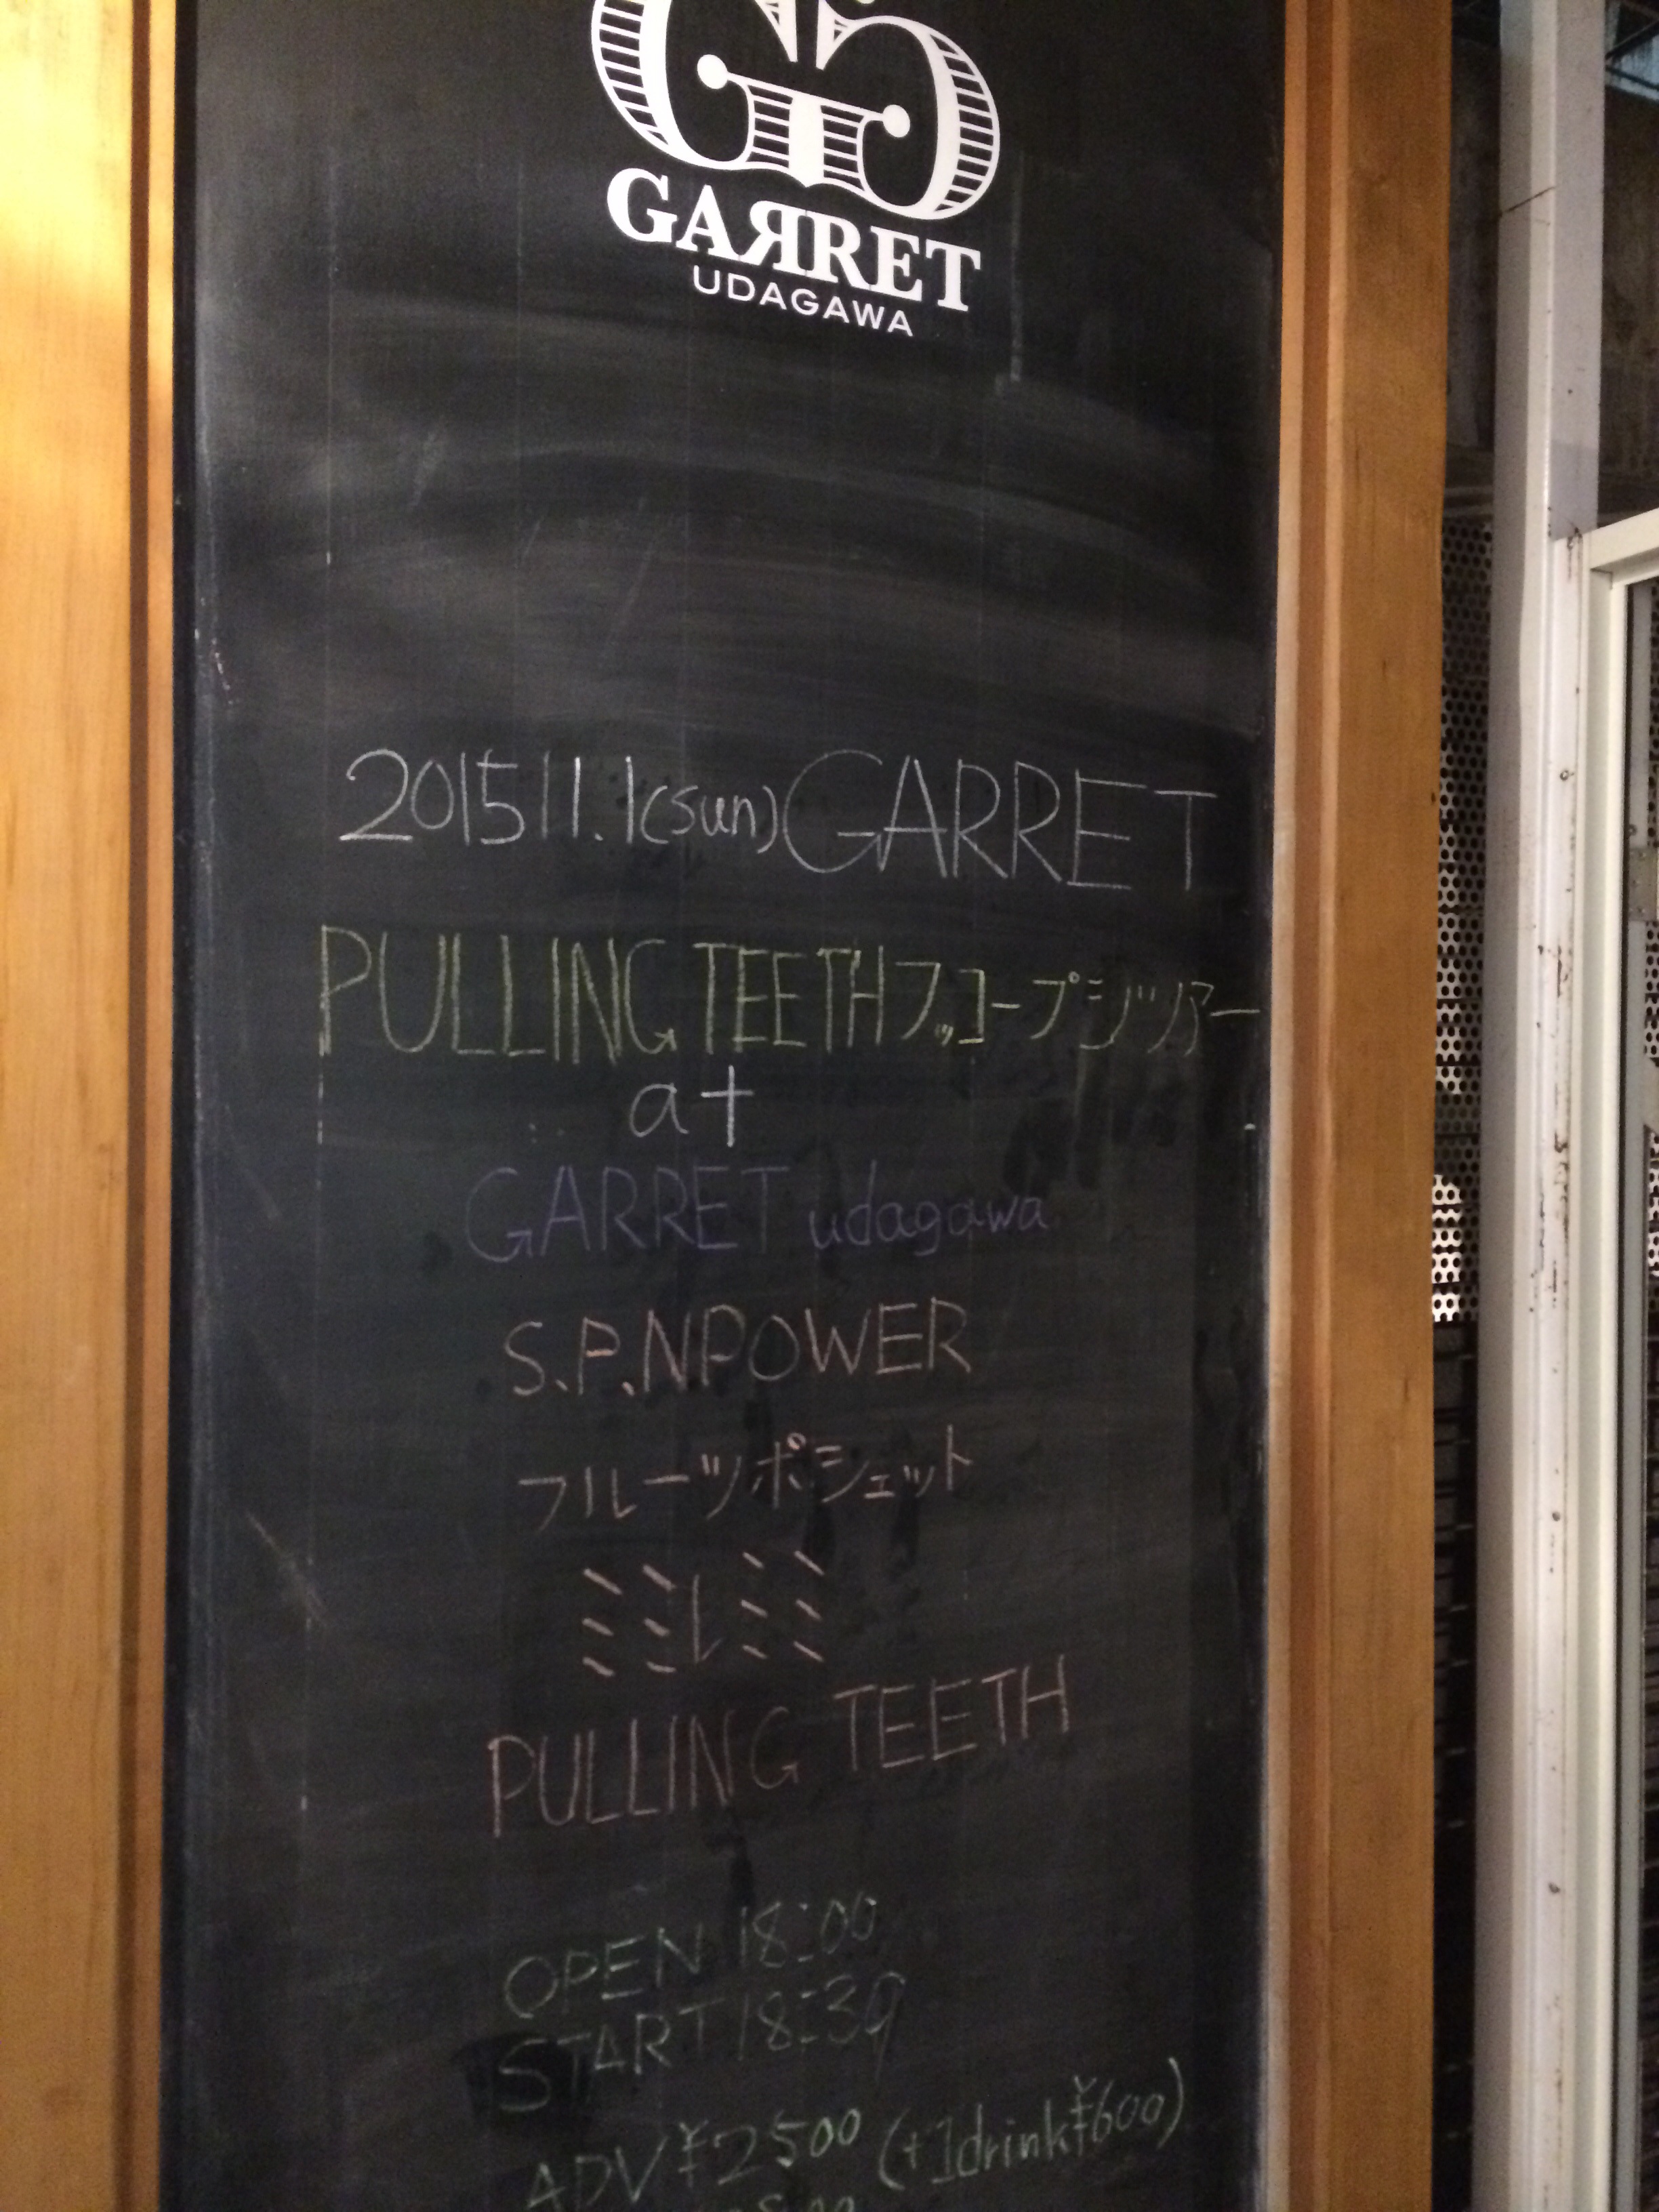 GARRET
UDAGAWA
2015 11.1(sun) GARRET
PULLING TEETH フッコープシジツアー
at
GARRET udagawa
S.P.N POWER
フルーツポシェット
ミミレミミ
PULLING TEETH
OPEN 18:00
START 18:30
ADV ¥2500 (+1drink¥600)